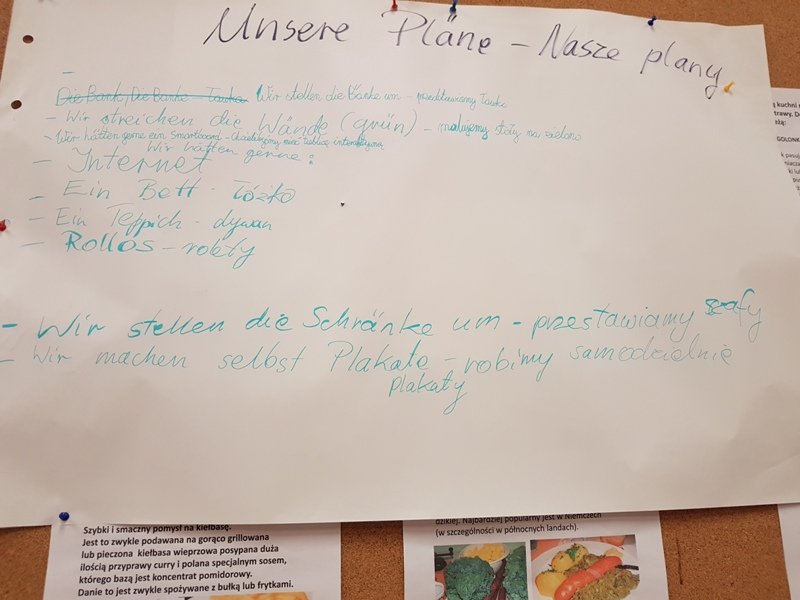 Unsere Pläne - Nasze plany
-
Die Bank, Die Bänke - Ławka Wir stellen die Bänke um - przedstawiamy ławka
- Wir streichen die Wände (grün) - malujemy stoły na zielono
- Wir hätten gerne ein Smartboard - chcielibyśmy mieć tablicę interaktywną
Wir hätten gerne:
- Internet
- Ein Bett - łóżko
- Ein Teppich - dywan
- Rollos - rolety
- Wir stellen die Schränke um - przestawiamy szafy
- Wir machen selbst Plakate - robimy samodzielnie
plakaty
Szybki i smaczny pomysł na kiełbasę.
Jest to zwykle podawana na gorąco grillowana
lub pieczona kiełbasa wieprzowa posypana duża
ilością przyprawy curry i polana specjalnym sosem,
którego bazą jest koncentrat pomidorowy.
Danie to jest zwykle spożywane z bułką lub frytkami.
dzikiej. Najbardziej popularny jest w Niemczech
(w szczególności w północnych landach).
kuchni
trawy. Da
GOLONK